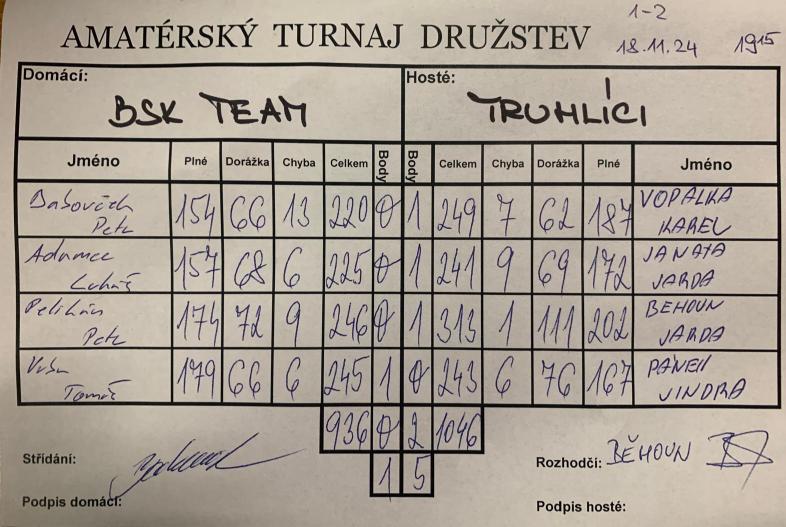 1-2
AMATÉRSKÝ TURNAJ DRUŽSTEV 18.11.24 19 15
Domácí: Hosté:
BSK TEAM TRUHLÍCI
Jméno Plné Dorážka Chyba Celkem Body Body Celkem Chyba Dorážka Plné Jméno
Petr 154 66 13 220 0 1 249 7 62 187 VOPALKA KAREL
Adamec Lukáš 157 68 6 225 0 1 241 9 69 172 JANATA JARDA
Pelikán Petr 174 72 9 246 0 1 313 1 111 202 BĚHOUN JARDA
Tomáš 179 66 6 245 1 0 243 6 76 167 JINDRA
936 0 2 1046
Střídání: 1 5 Rozhodčí: BĚHOUN
Podpis domácí: Podpis hosté: